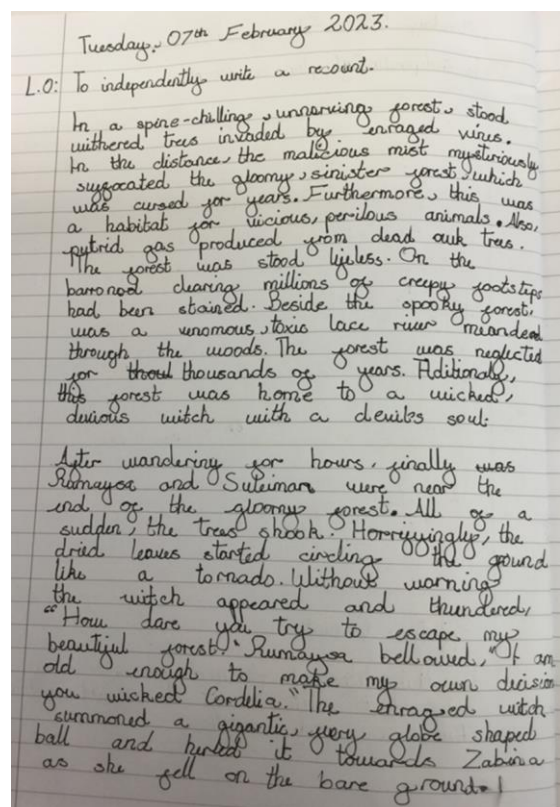 Tuesday, 07th February 2023.
L.O: To independently write a recount.
In a spine-chilling, unnurving forest, stood
withered trees invaded by enraged vines.
In the distance, the malicious mist mysteriously
suffocated the gloomy, sinister forest, which
was cursed for years. Furthermore, this was
a habitat for vicious, perilous animals. Also,
putrid gas produced from dead auk trees.
The forest was stood lifeless. On the
barronod clearing millions of creepy footstips
had been stained. Beside the spooky forest,
was a venomous, toxic lace river meanded
through the woods. The forest was neglected
for thousands of years. Aditionaly,
this forest was home to a wicked,
devious witch with a devils soul.
After wandering for hours, finally was
Rumaysa and Suleiman were near the
end of the gloomy forest. All of a
sudden, the trees shook. Horrifyingly, the
dried leaves started circling the ground
like a tornado. Without warning
the witch appeared and thundered,
"How dare you try to escape my
beautiful forest." Rumaysa bellowed, "I am
old enough to make my own decision
you wicked Cordelia." The enraged witch
summoned a gigantic, fiery globe shaped
ball and hurled it towards Zabina
as she fell on the bare ground.